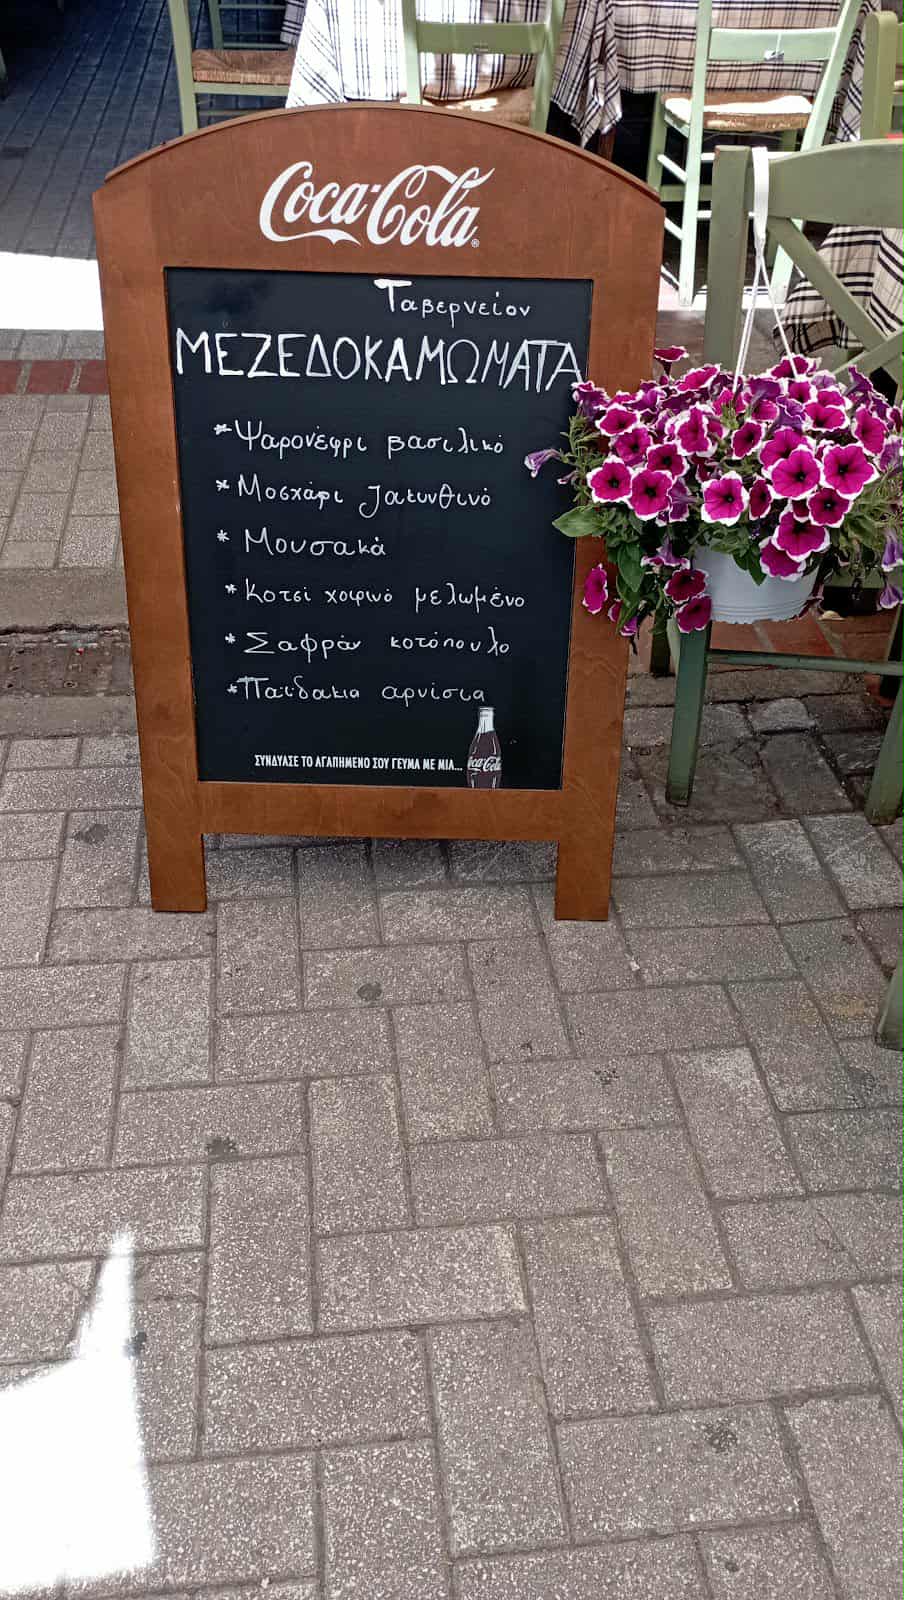 Coca-Cola
Ταβερνείον
ΜΕΖΕΔΟΚΑΜΩΜΑΤΑ
*Ψαρονέφρι βασιλικό
*Μοσχάρι Ζακυνθινό
*Μουσακά
*Κοτσί χοιρινό μελωμένο
*Σαφράν κοτόπουλο
*Παϊδάκια αρνίσια
ΣΥΝΔΥΑΣΕ ΤΟ ΑΓΑΠΗΜΕΝΟ ΣΟΥ ΓΕΥΜΑ ΜΕ ΜΙΑ...
Coca-Cola